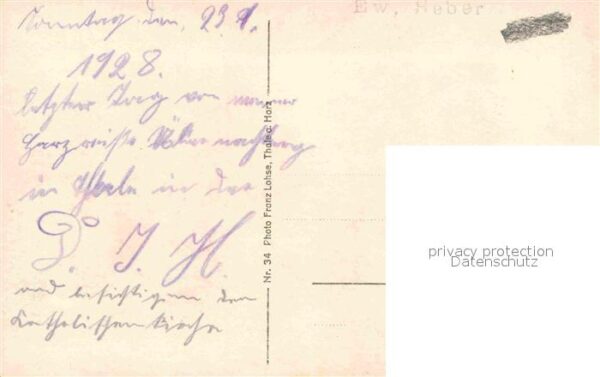 Sonntag den, 29.1.
1928.
letzter Tag von meiner
Harzreise
in Thale in der
D. J. H.
und besichtigen den
Katholischen Kirche
Nr. 34 Photo Franz Lohse, Thale a. Harz
Ew. Reber
privacy protection
Datenschutz